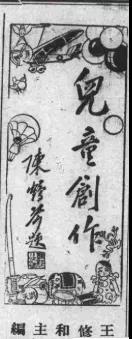 兒童創作
陳鶴琴題
王修和主編